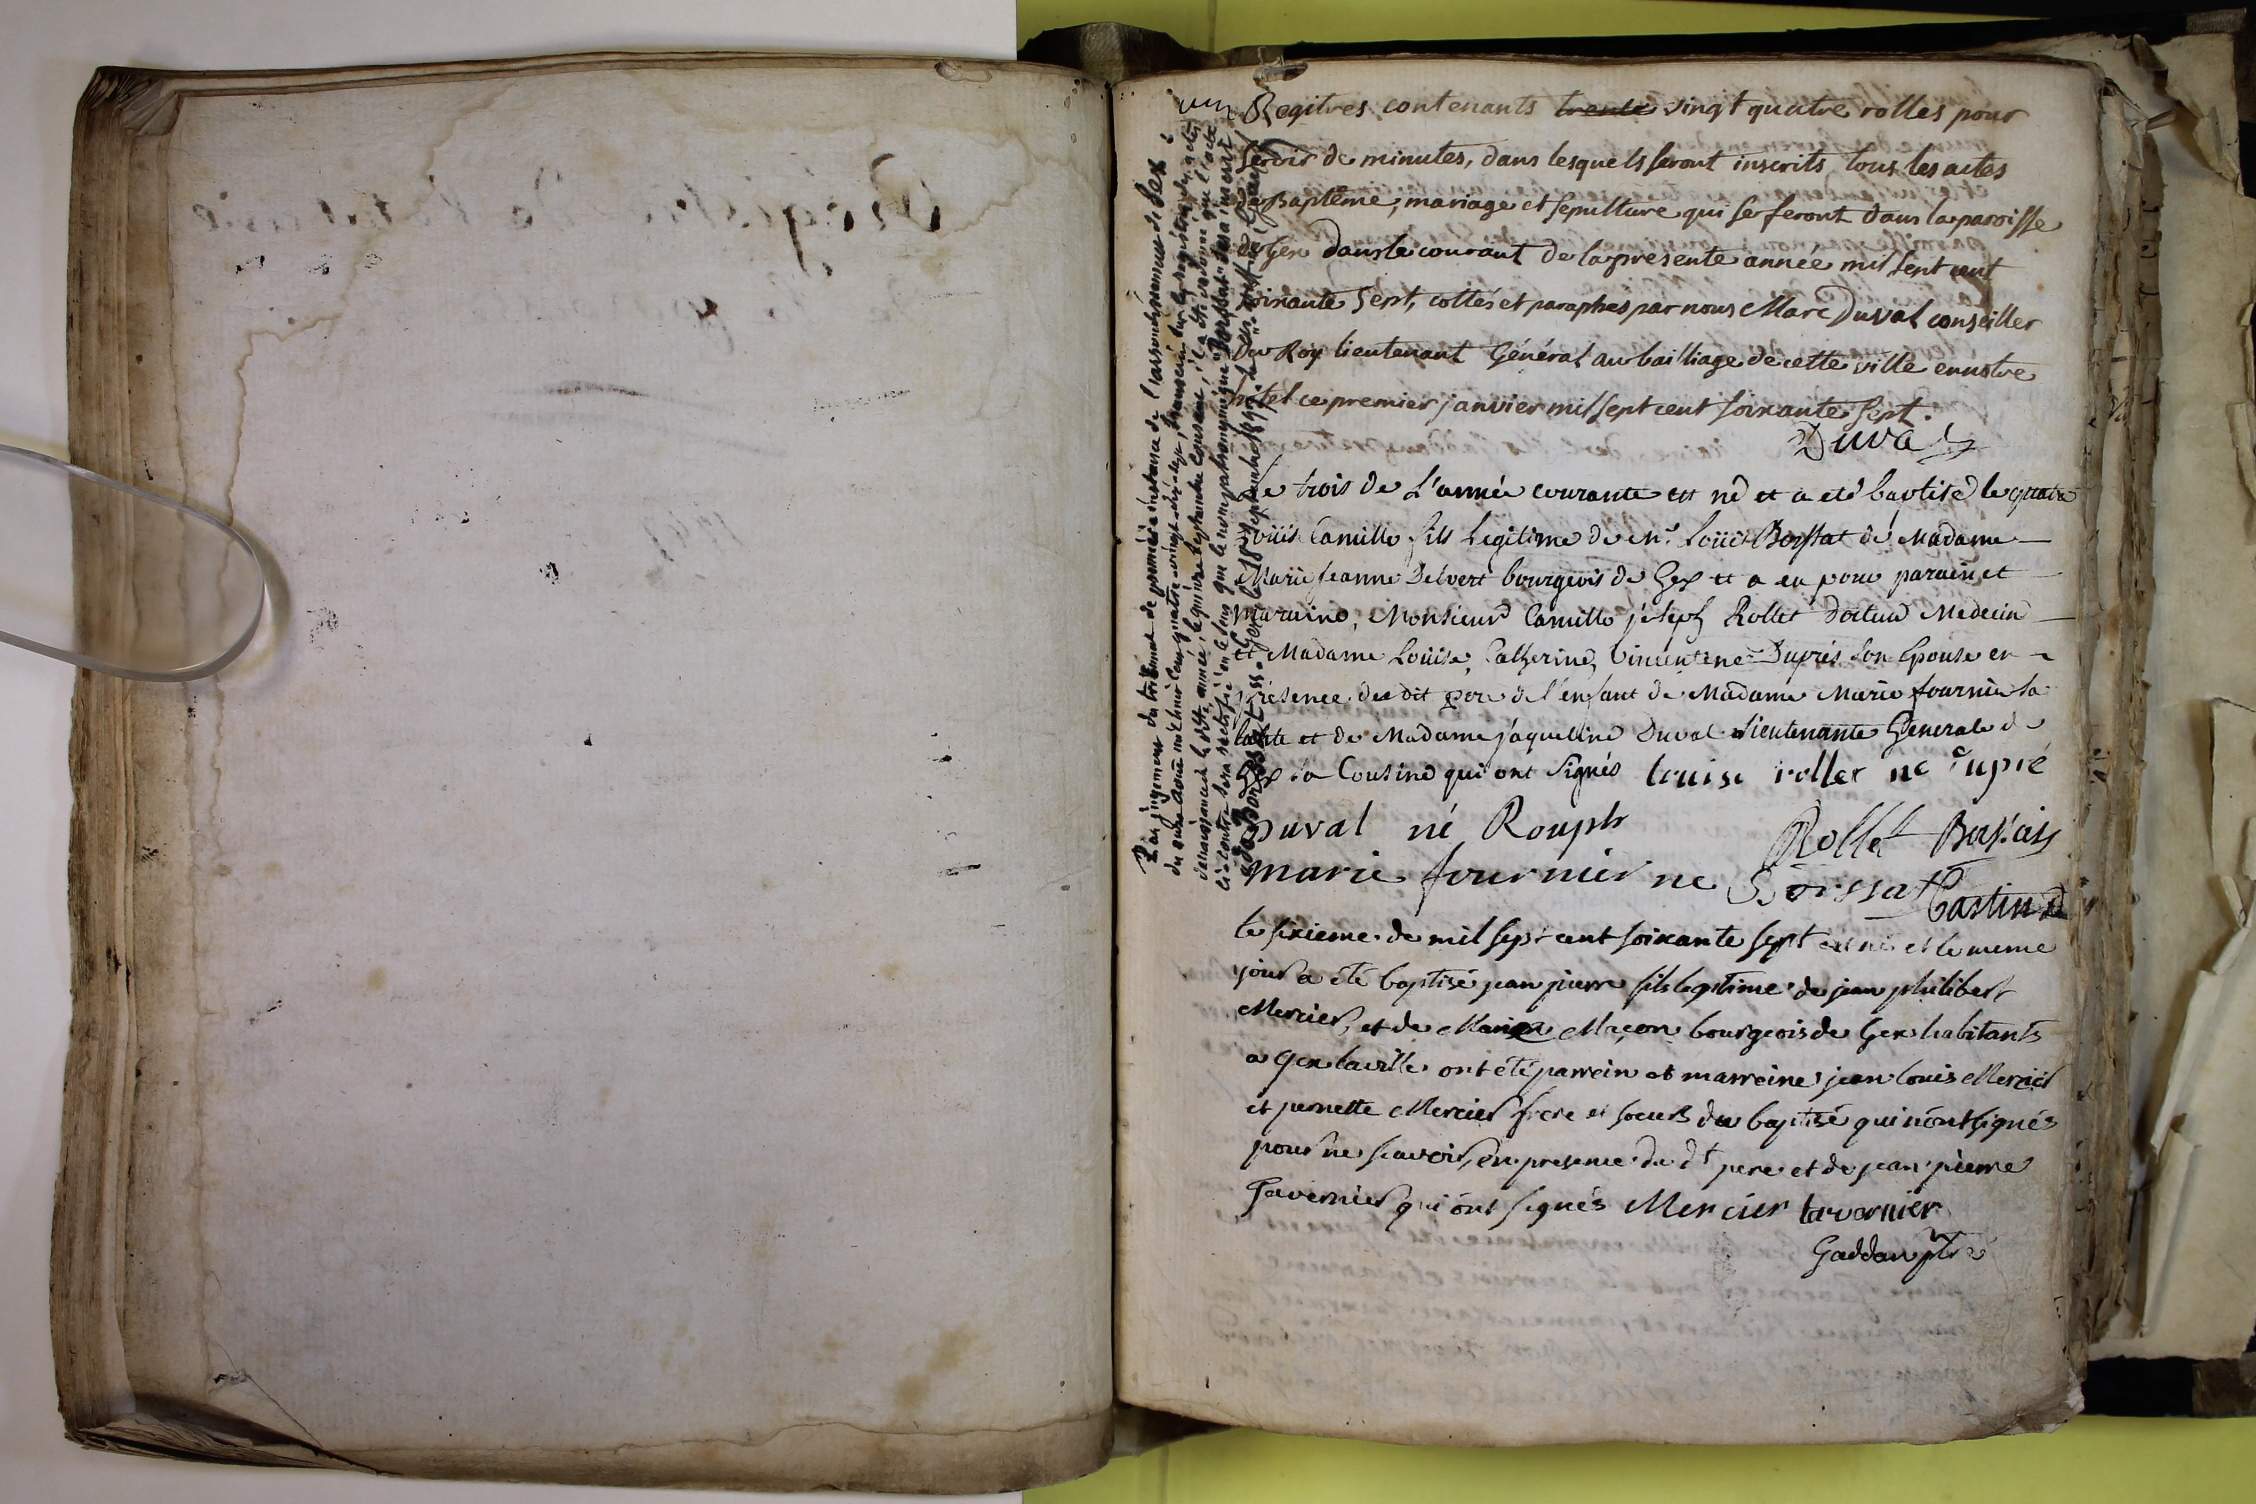 un
Regitres contenants trente vingt quatre rolles pour
servir de minutes, dans lesquels seront inscrits tous les actes
de Baptême, mariage et sepulture qui se feront dans la paroisse
de Gex dans le courant de la presente année mil sept cent
soixante sept, cottés et paraphes par nous Marc Duval conseiller
du Roy lieutenant Général au bailliage de cette ville en notre
hotel ce premier janvier mil sept cent soixante sept.
Duval
Le trois de L'année courante est né et a eté baptisé le quatre
Loüis Camille fils Legitime de mr. Loüis Borssat de Madame
Marie Jeanne Delvert bourgeois de Gex et a eu pour parain et
maraine, Monsieur Camille joseph Rollet docteur Medecin
et Madame Loüise, Catherine, Vincentene Dupres son Epouse en
présence du dit pere de l'enfant de Madame Marie fournier sa
tante et de Madame jaqueline Duval Lieutenante Generale de
Gex sa Cousine qui ont Signés Louise rollet né dupré
Duval né Rouph
Rollet Borssat
marie fournier ne Borssat
Castin
le sixieme de mil sept cent soixante sept est né et le meme
jour a été baptisé jean pierre fils legitime de jean philibert
Mercier, et de Marie Maçon bourgeois de Gex habitants
a Gex la ville ont été parrein et marreine jean louis Mercier
et pernette Mercier frere et soeur du baptisé qui n'ont signés
pour ne scavoir, en presence du dt pere et de jean pierre
Tavernier qui ont signés Mercier tavernier
Gaddan ptre
Par jugement du tribunal de première instance de l'arrondissement de Gex
du onze Août mil huit cent quatre-vingt-dix-sept, transcrit sur les registres
de naissance de la dite année, il a été ordonné que l'acte
ci-contre sera rectifié en ce sens que le nom patronymique
de Borssat